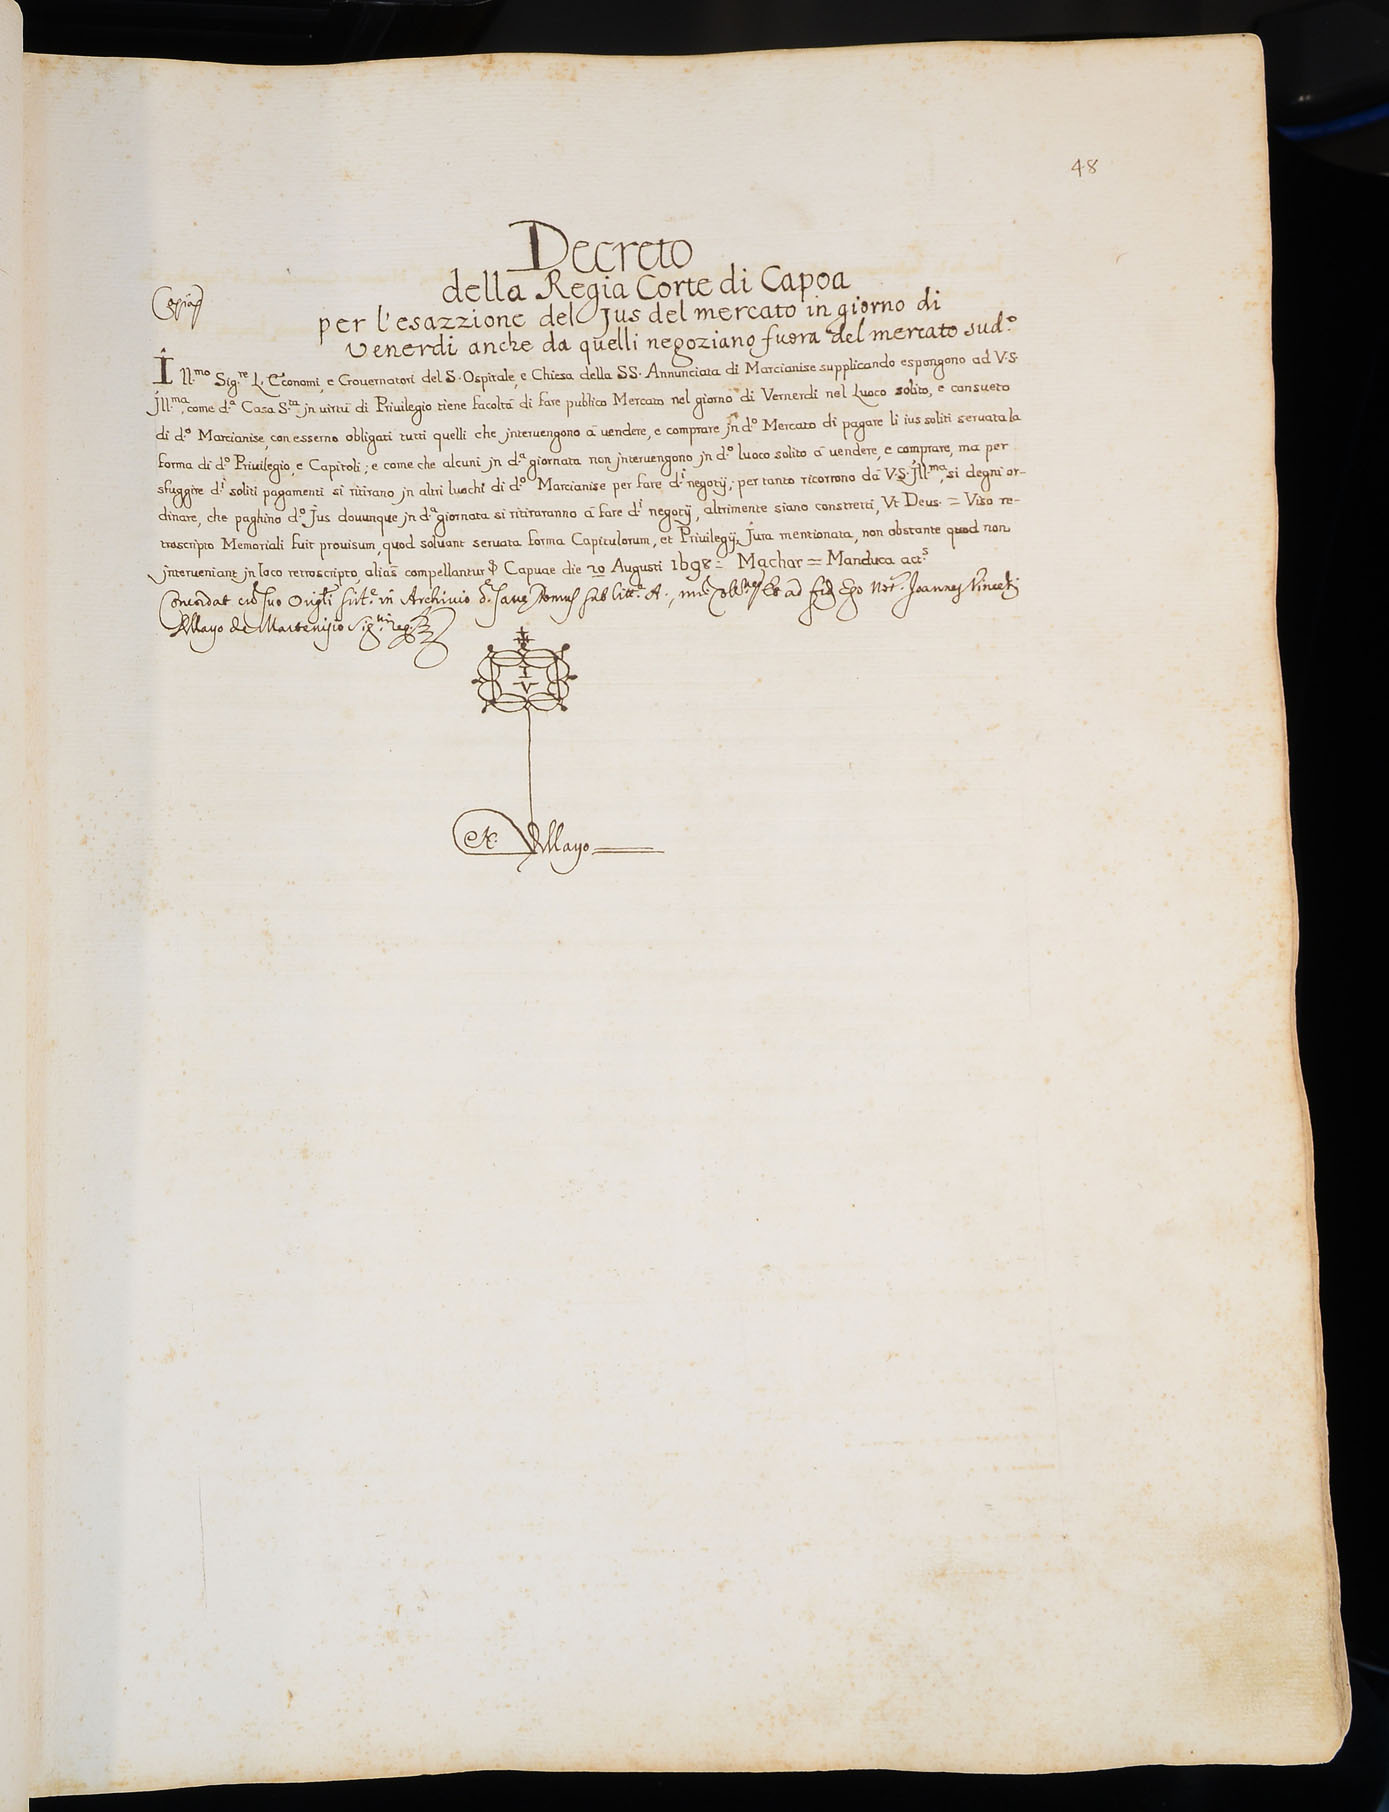 48
Decreto
della Regia Corte di Capoa
Copia
per l'esazzione del Jus del mercato in giorno di
Venerdi anche da quelli negoziano fuora del mercato sud.º
Ill.mo Sig.re L'Economi, e Gouernatori del S. Ospitale, e Chiesa della SS. Annunciata di Marcianise supplicando espongono ad V.S.
Jll.ma, come d.ª Casa S.ta jn uirtù di Priuilegio tiene facoltà di fare publico Mercato nel giorno di Vernerdi nel Luoco solito, e consueto
di d.º Marcianise, con esserno obligati tutti quelli che jnteruengono à uendere, e comprare jn d.º Mercato di pagare li ius soliti seruata la
forma di d.º Priuilegio, e Capitoli; e come che alcuni jn d.ª giornata non jnteruengono jn d.º luoco solito à uendere, e comprare, ma per
sfuggire d.i soliti pagamenti si ritirano jn altri luochi di d.º Marcianise per fare d.i negotij; per tanto ricorrono dà V.S. Jll.ma, si degni or-
dinare, che paghino d.º Jus douunque jn d.ª giornata si ritiraranno à fare d.i negotij, altrimente siano constretti, Vt Deus. = Viso re-
troscripto Memoriali fuit prouisum, quod soluant seruata forma Capitulorum, et Priuilegij, Jura mentionata, non obstante quod non
jnterueniant jn loco retroscripto, alias compellantur &c. Capuae die 20 Augusti 1698 = Machar = Manduca act.s
Concordat cū suo Orig.li sist.e in Archiuio d.ª sub litt.ª A., Et ad fidē Ego Not.s Joannes Vincent.s
de Mayo de Marcenisio
I
V
de Mayo